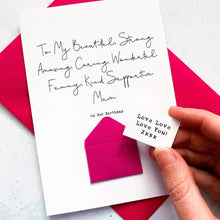 To My Beautiful, Strong,
Amazing, Caring, Wonderful
Funny, Kind, Supportive
Mum
on Our Birthday
Love Love
Love You!
xxxx